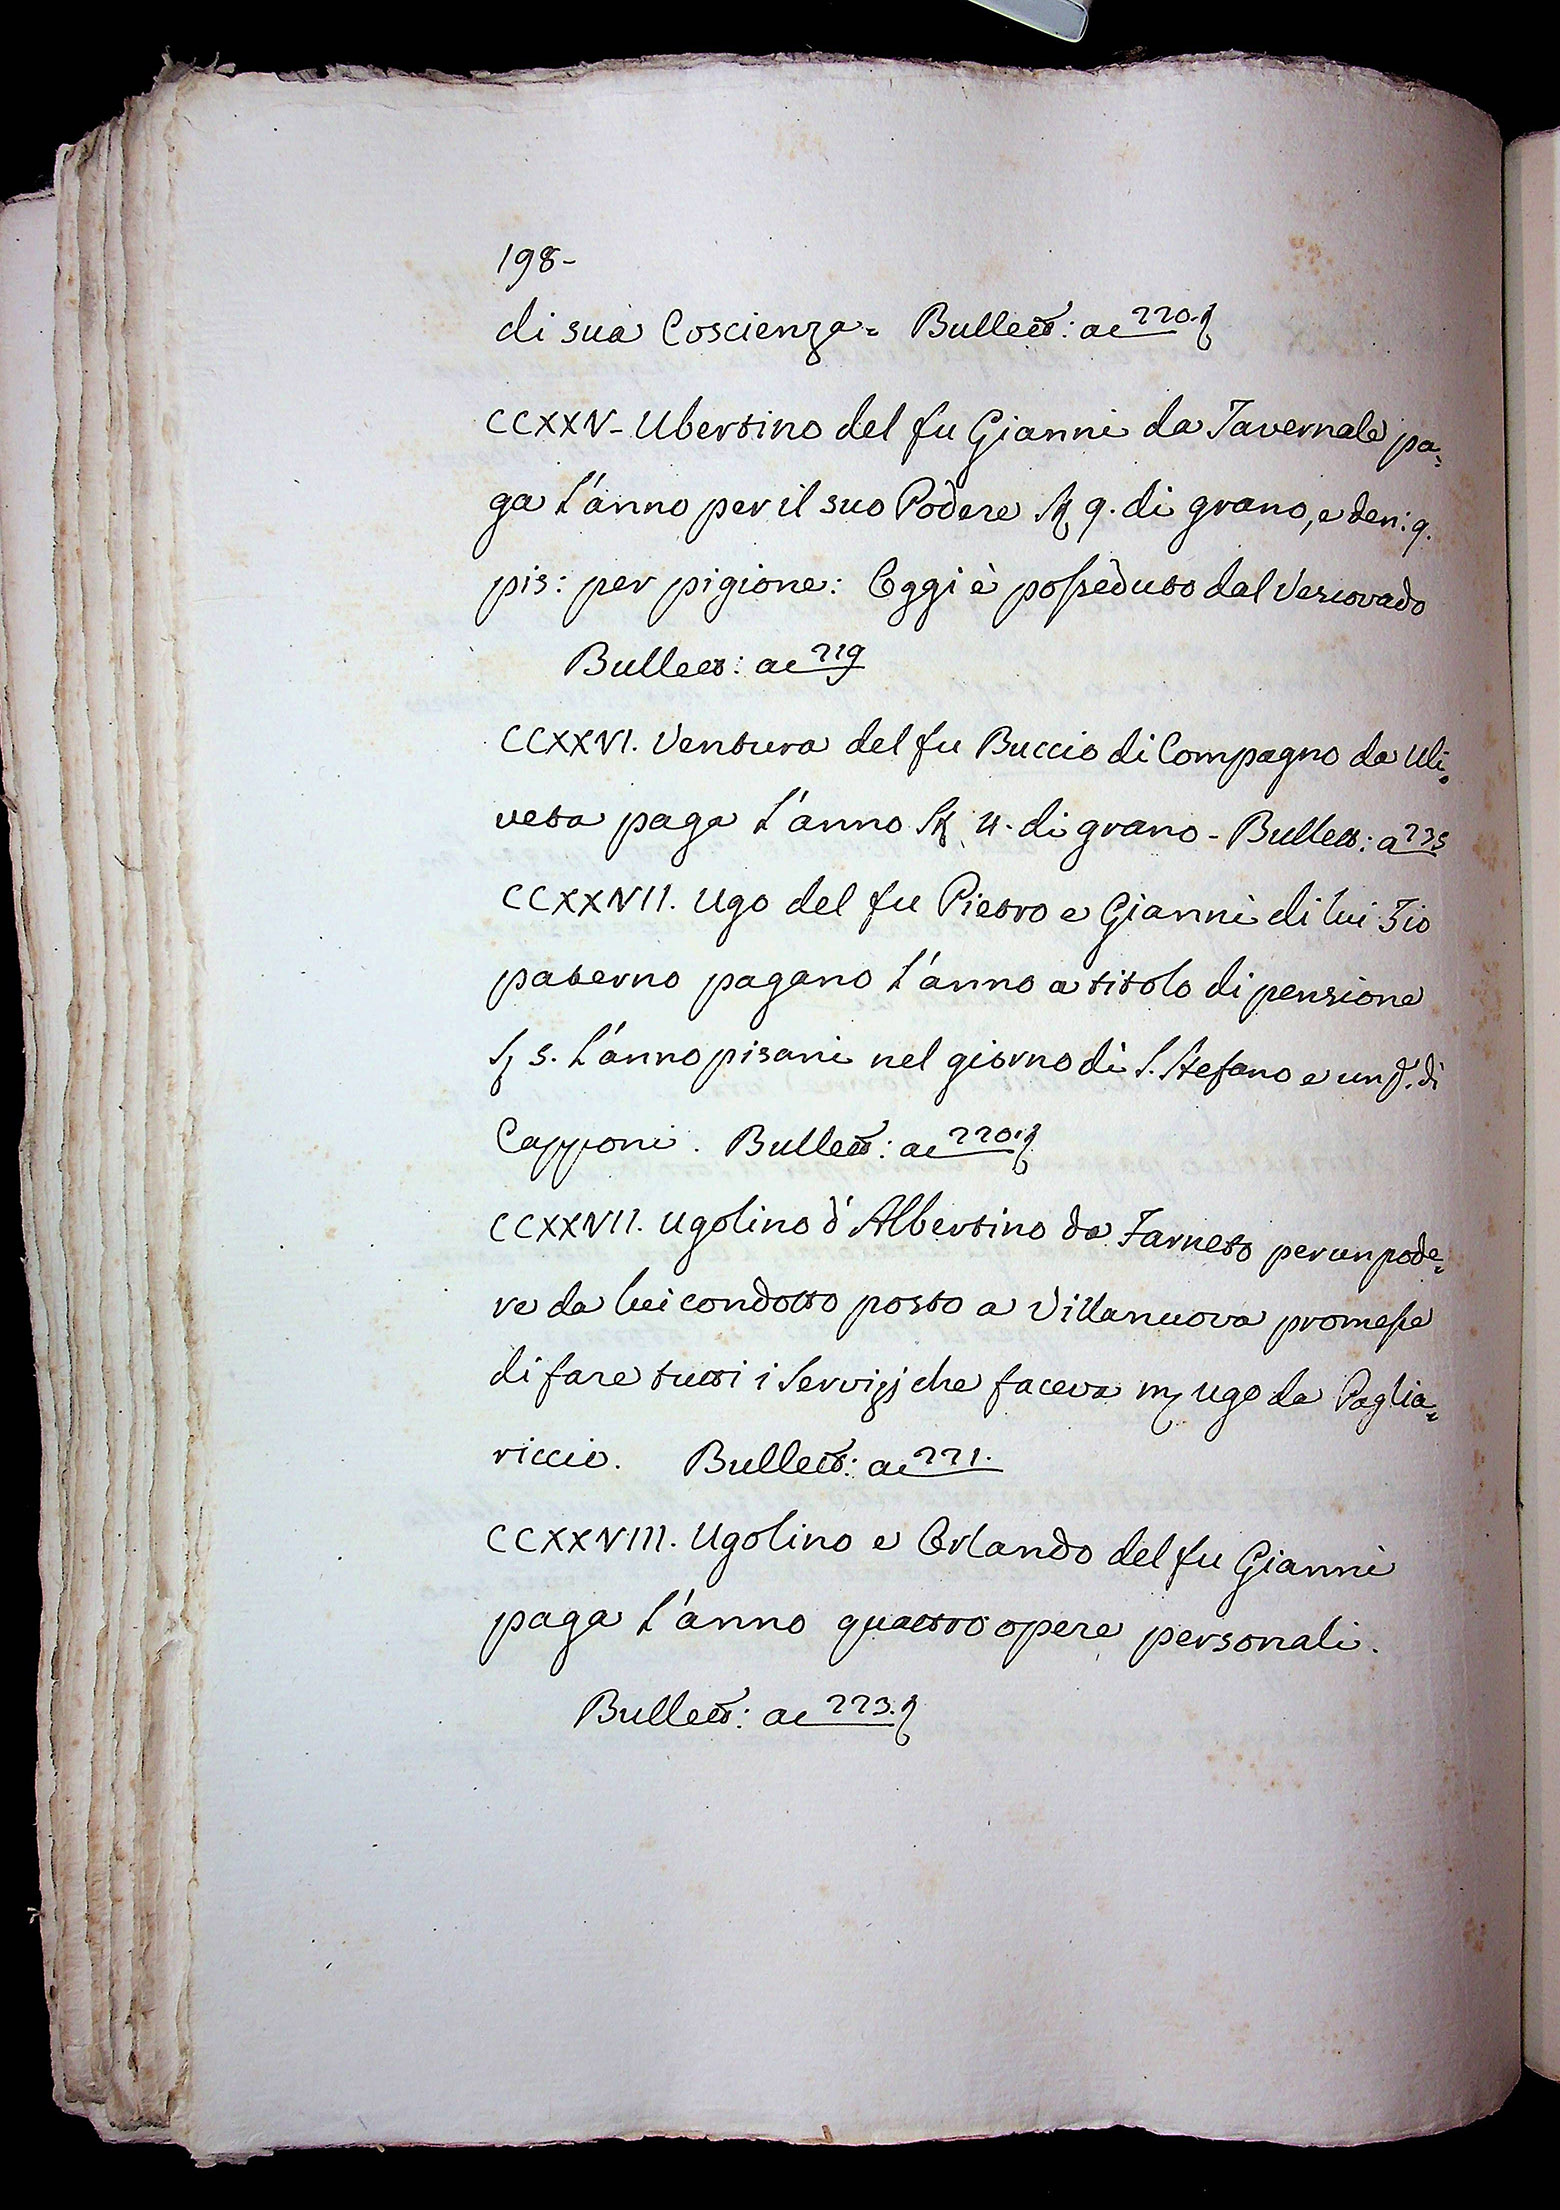 198-
di sua Coscienza = Bullett: ac 220.
CCXXV- Ubertino del fu Gianni da Tavernale pa=
ga l'anno per il suo Podere St 9. di grano, e den: 9.
pis: per pigione: Oggi è posseduto dal Vescovado
Bullett: ac 219
CCXXVI. Ventura del fu Buccio di Compagno da Uli=
veta paga l'anno St 4. di grano - Bullett: a 235
CCXXVII. Ugo del fu Pietro e Gianni di lui Zio
paterno pagano l'anno a titolo di pensione
S 5. l'anno pisani nel giorno di S. Stefano e un p. di
Capponi. Bullett: ac 220.
CCXXVII. Ugolino d'Albertino da Farneto per un pode=
re da lui condotto posto a Villanuova promesse
di fare tutti i Servizj che faceva Ugo da Paglia=
riccio. Bullett: ac 221.
CCXXVIII. Ugolino e Orlando del fu Gianni
paga l'anno quattro opere personali.
Bullett: ac 223.